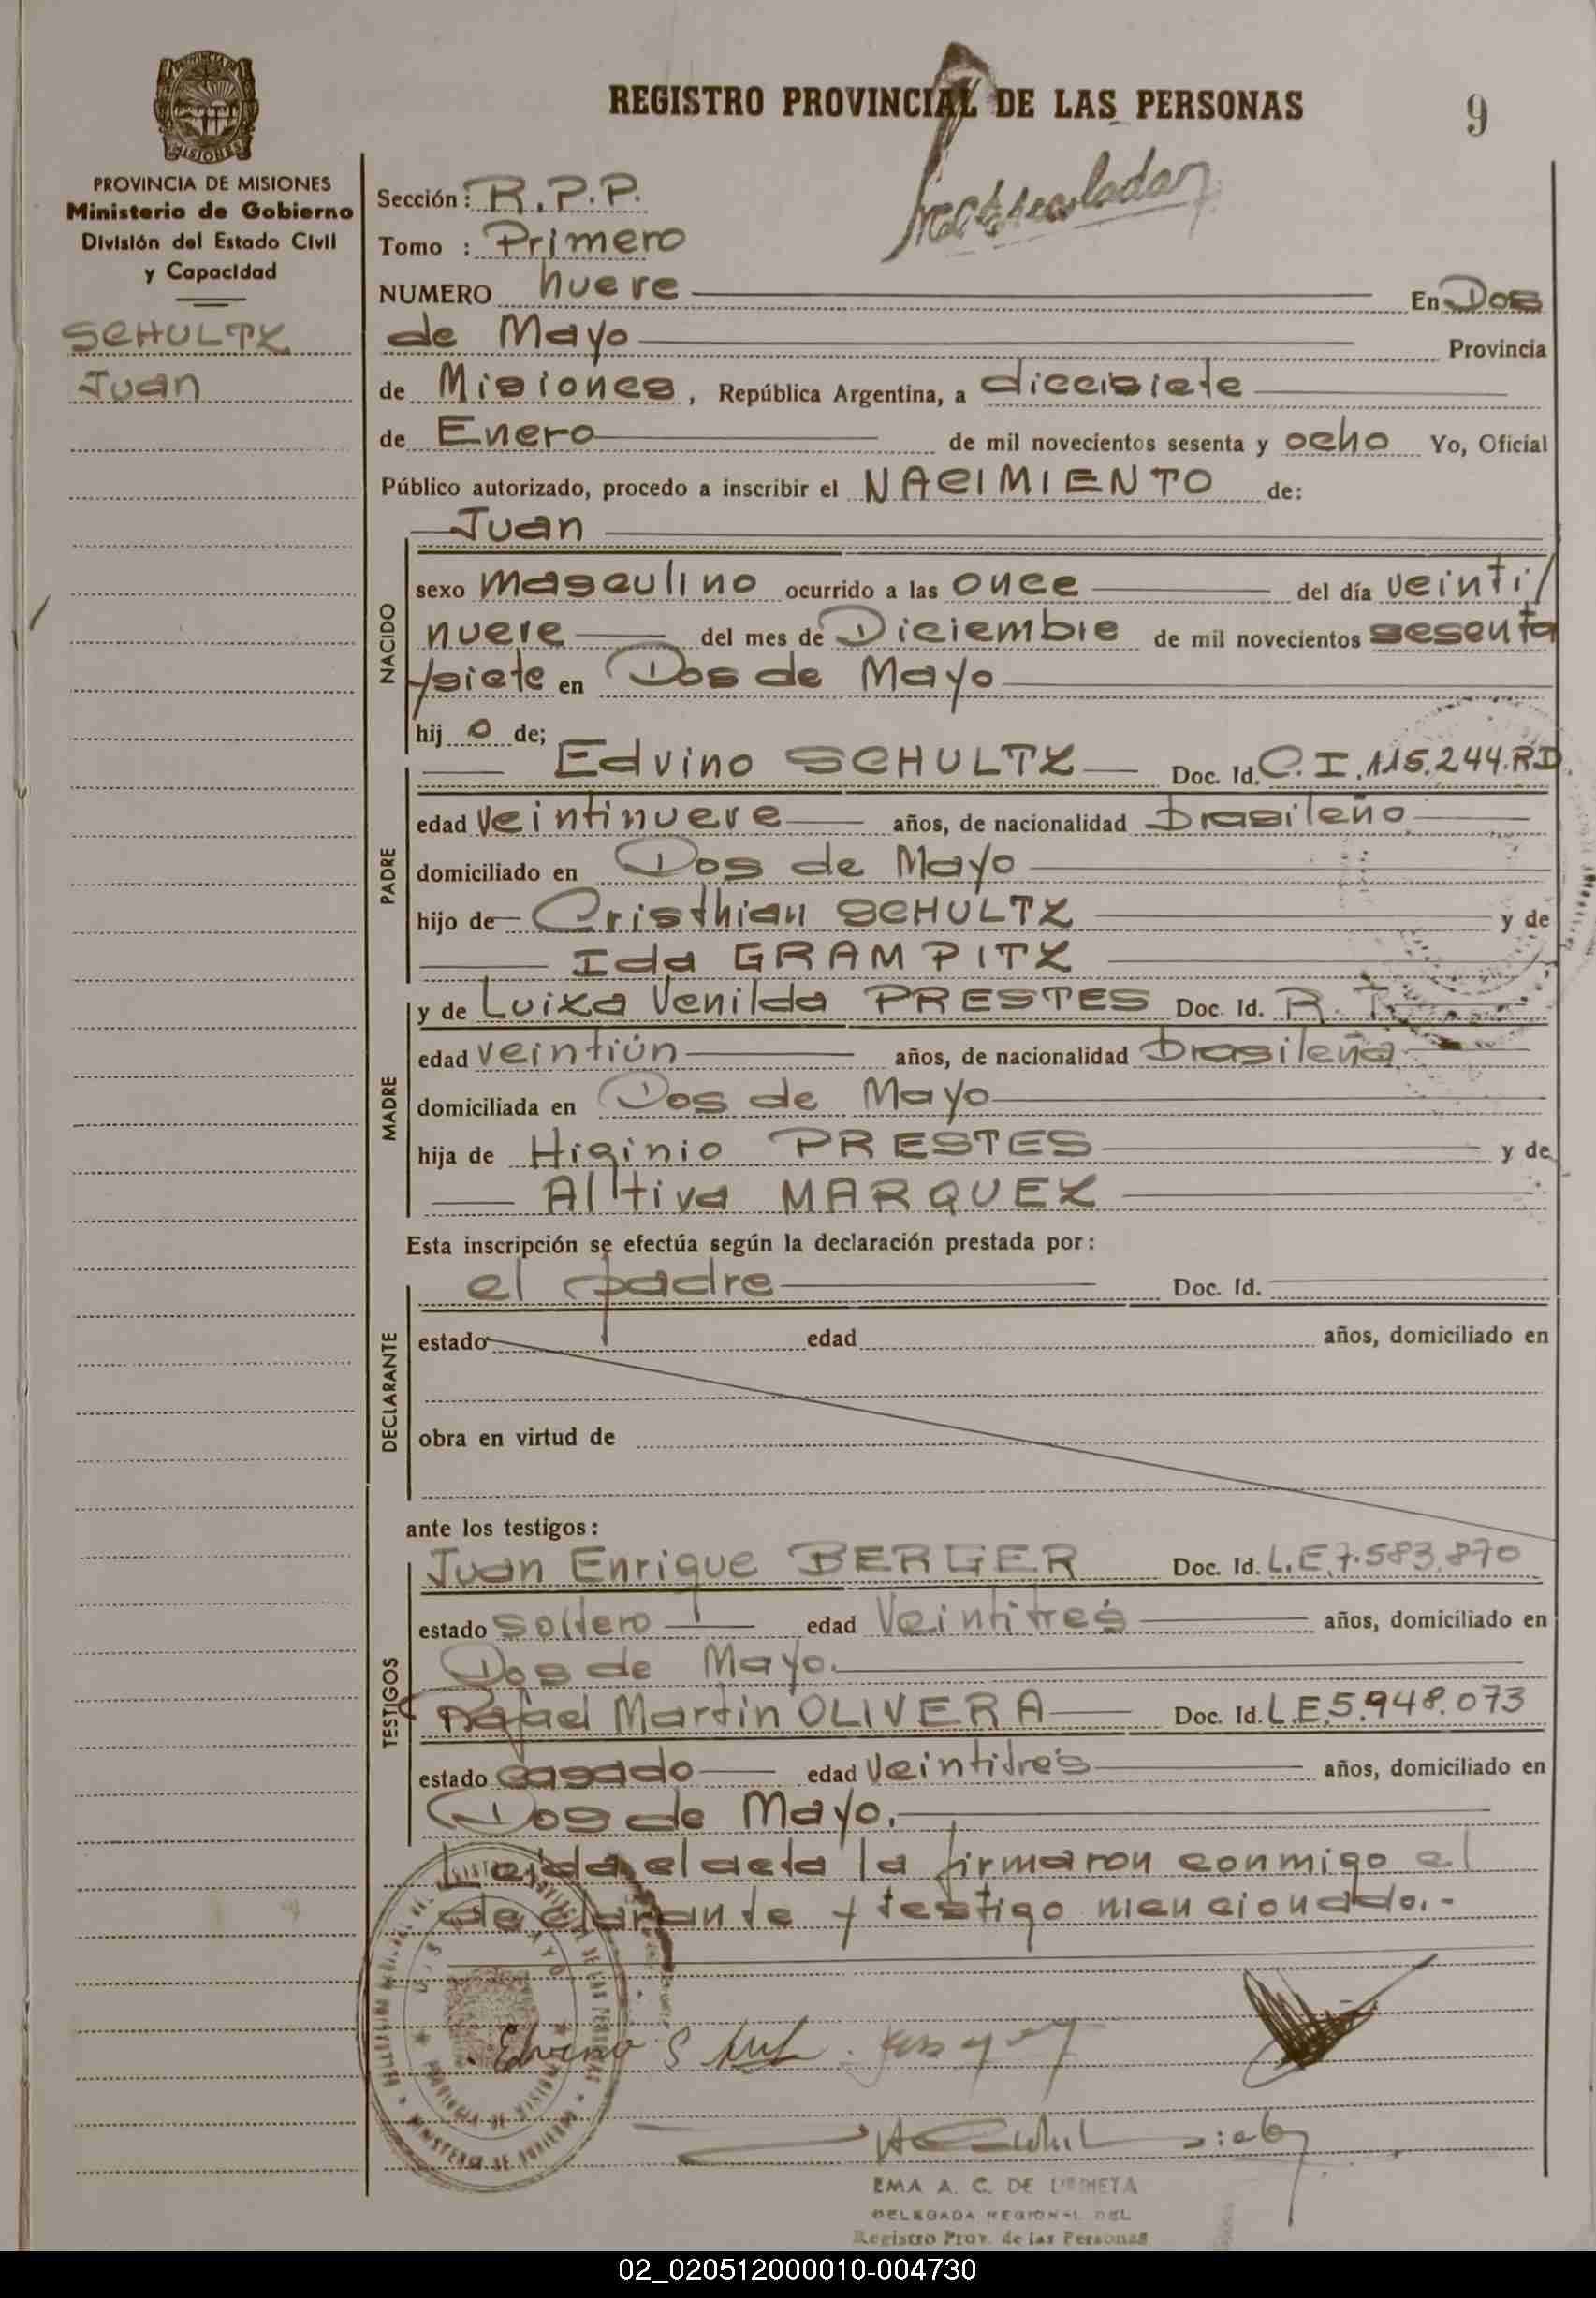 REGISTRO PROVINCIAL DE LAS PERSONAS
9
MISIONES
PROVINCIA DE MISIONES
Ministerio de Gobierno
División del Estado Civil
y Capacidad
SCHULTZ
Juan
Matriculado
Sección: R.P.P.
Tomo : Primero
NUMERO nueve En Dos
de Mayo Provincia
de Misiones, República Argentina, a diecisiete
de Enero de mil novecientos sesenta y ocho Yo, Oficial
Público autorizado, procedo a inscribir el NACIMIENTO de:
Juan
NACIDO
sexo masculino ocurrido a las once del día veinti/
nueve del mes de Diciembre de mil novecientos sesenta
y siete en Dos de Mayo
hij o de;
PADRE
Edvino SCHULTZ Doc. Id. C.I.115.244.RD.
edad veintinueve años, de nacionalidad brasileño
domiciliado en Dos de Mayo
hijo de Cristhian SCHULTZ y de
Ida GRAMPITZ
MADRE
y de Luiza Venilda PRESTES Doc. Id. R.T.
edad veintiún años, de nacionalidad brasileña
domiciliada en Dos de Mayo
hija de Higinio PRESTES y de
Altiva MARQUEZ
Esta inscripción se efectúa según la declaración prestada por:
DECLARANTE
el padre Doc. Id.
estado edad años, domiciliado en
obra en virtud de
ante los testigos:
TESTIGOS
Juan Enrique BERGER Doc. Id. L.E.7.583.870
estado soltero edad veintitrés años, domiciliado en
Dos de Mayo.
Rafael Martin OLIVERA Doc. Id. L.E.5.948.073
estado casado edad veintitrés años, domiciliado en
Dos de Mayo.
Leída el acta la firmaron conmigo el
declarante y testigo mencionado.-
EMA A. C. DE
DELEGADA REGIONAL DEL
Registro Prov. de las Personas
02_020512000010-004730